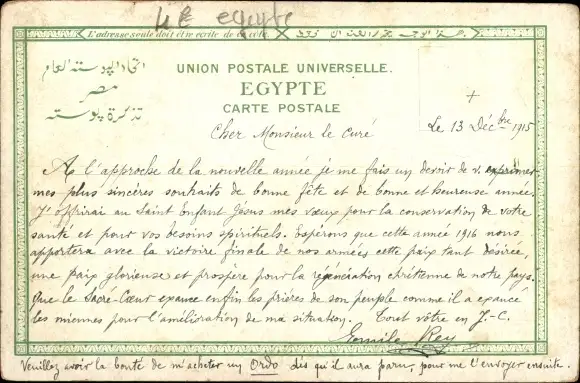 4 E egypte
L'adresse seule doit être écrite de ce côté.
UNION POSTALE UNIVERSELLE.
اتحاد البوسته العام
EGYPTE
مصر
CARTE POSTALE
تذكرة بوسته
Cher Monsieur le Curé
Le 13 Décbre 1915
A l'approche de la nouvelle année je me fais un devoir de v. exprimer
mes plus sincères souhaits de bonne fête et de bonne et heureuse année.
J'offrirai au Saint Enfant Jésus mes vœux pour la conservation de votre
santé et pour vos besoins spirituels. Espérons que cette année 1916 nous
apportera avec la victoire finale de nos armées cette paix tant désirée,
une paix glorieuse et prospère pour la régénciation chrétienne de notre pays.
Que le Sacré-Cœur exauce enfin les prières de son peuple comme il a exaucé
les miennes pour l'amélioration de ma situation. Tout vôtre en J.-C.
Emile Rey
Veuillez avoir la bonté de m'acheter un Ordo dès qu'il aura paru, pour me l'envoyer ensuite.